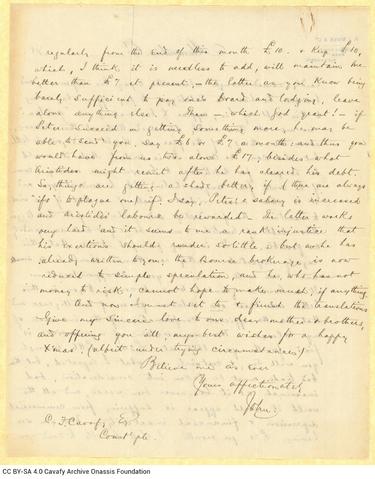 regularly from the end of this month £10. & keep £10,
which, I think, it is needless to add, will maintain me
better than £7 at present, the latter as you know being
barely sufficient to pay one's board and lodging, leave
alone anything else. Then — which God grant! — if
Peter succeed in getting something more, he may be
able to send you, say £6 or £7 a month and thus you
would have from us two alone £17, besides what
Aristides might remit after he has cleared his debt.
So, things are getting a shade better, if (there are always
"ifs" to plague one) if, I say, Peter's salary is increased
and Aristides' labours be rewarded. The latter works
very hard and it seems to me a rank injustice that
his exertions should render so little; but as he has
already written to you, the Bourse brokerage is now
reduced to simple speculation, and he, who has not
money to risk, cannot hope to make much, if anything.
And now I must set to & finish the translations
Give my sincere love to our dear mother & brothers,
and offering you all my best wishes for a happy
Xmas, (albeit under trying circumstances!)
Believe me as ever
Yours affectionately
John.
C. F. Cavafy, Esq
Const'ple.
CC BY-SA 4.0 Cavafy Archive Onassis Foundation